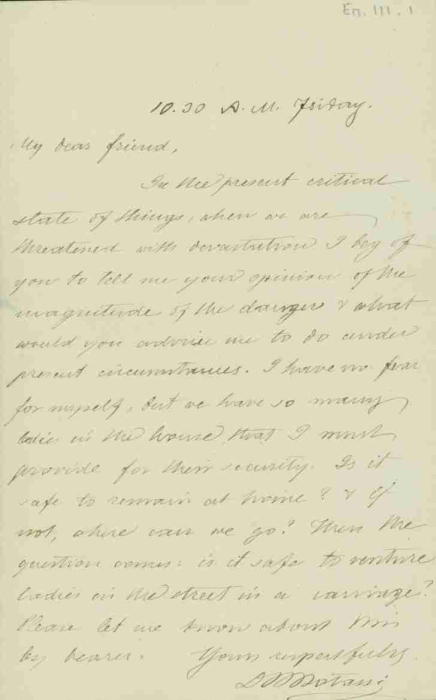 En. III. 1
10.30 A.M. Friday.
My dear friend,
In the present critical
state of things, when we are
threatened with devastation I beg of
you to tell me your opinion of the
magnitude of the danger & what
would you advise me to do under
present circumstances. I have no fear
for myself, but we have so many
ladies in the house, that I must
provide for their security. Is it
safe to remain at home? & if
not, where can we go? Then the
question comes: is it safe to venture
ladies on the street in a carriage?
Please let me know about this
by bearer. Yours respectfully